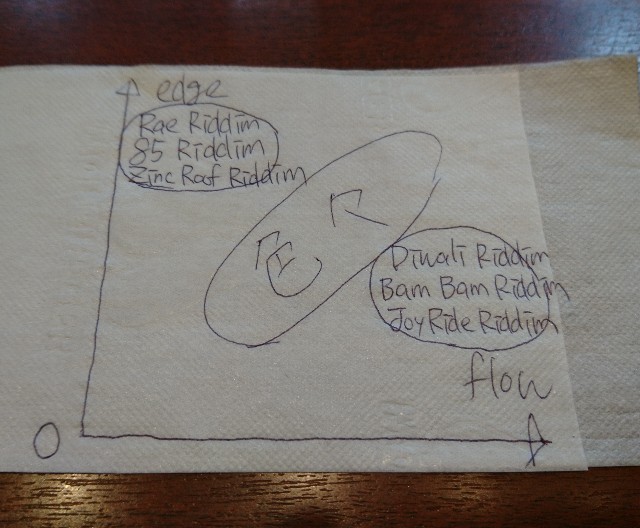 edge
Rae Riddim
85 Riddim
Zinc Roof Riddim
Diwali Riddim
Bam Bam Riddim
Joy Ride Riddim
flow
O